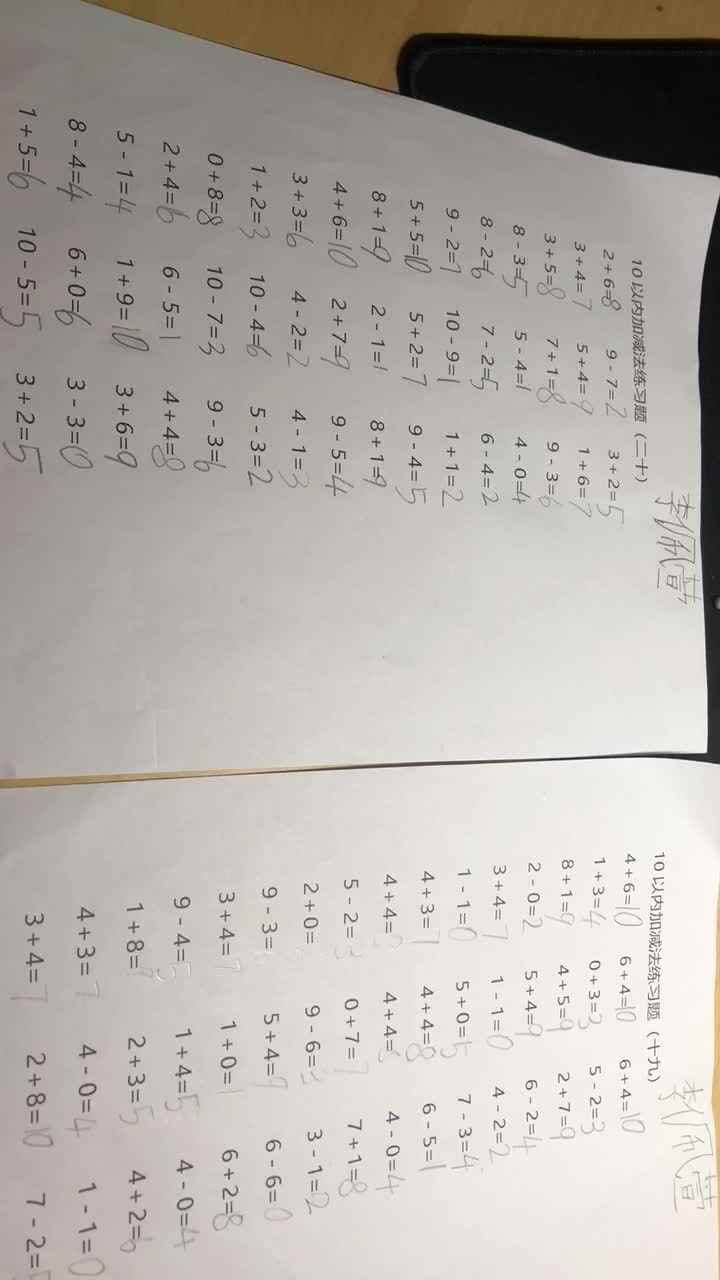 李佩萱
10 以内加减法练习题（二十）
2+6=8 9-7=2 3+2=5
3+4=7 5+4=9 1+6=7
3+5=8 7+1=8 9-3=6
8-3=5 5-4=1 4-0=4
8-2=6 7-2=5 6-4=2
9-2=7 10-9=1 1+1=2
5+5=10 5+2=7 9-4=5
8+1=9 2-1=1 8+1=9
4+6=10 2+7=9 9-5=4
3+3=6 4-2=2 4-1=3
1+2=3 10-4=6 5-3=2
0+8=8 10-7=3 9-3=6
2+4=6 6-5=1 4+4=8
5-1=4 1+9=10 3+6=9
8-4=4 6+0=6 3-3=0
1+5=6 10-5=5 3+2=5
李佩萱
10 以内加减法练习题（十九）
4+6=10 6+4=10 6+4=10
1+3=4 0+3=3 5-2=3
8+1=9 4+5=9 2+7=9
2-0=2 5+4=9 6-2=4
3+4=7 1-1=0 4-2=2
1-1=0 5+0=5 7-3=4
4+3=7 4+4=8 6-5=1
4+4= 4+4=8 4-0=4
5-2=3 0+7=7 7+1=8
2+0= 9-6=3 3-1=2
9-3= 5+4=9 6-6=0
3+4=7 1+0=1 6+2=8
9-4=5 1+4=5 4-0=4
1+8=9 2+3=5 4+2=6
4+3=7 4-0=4 1-1=0
3+4=7 2+8=10 7-2=5